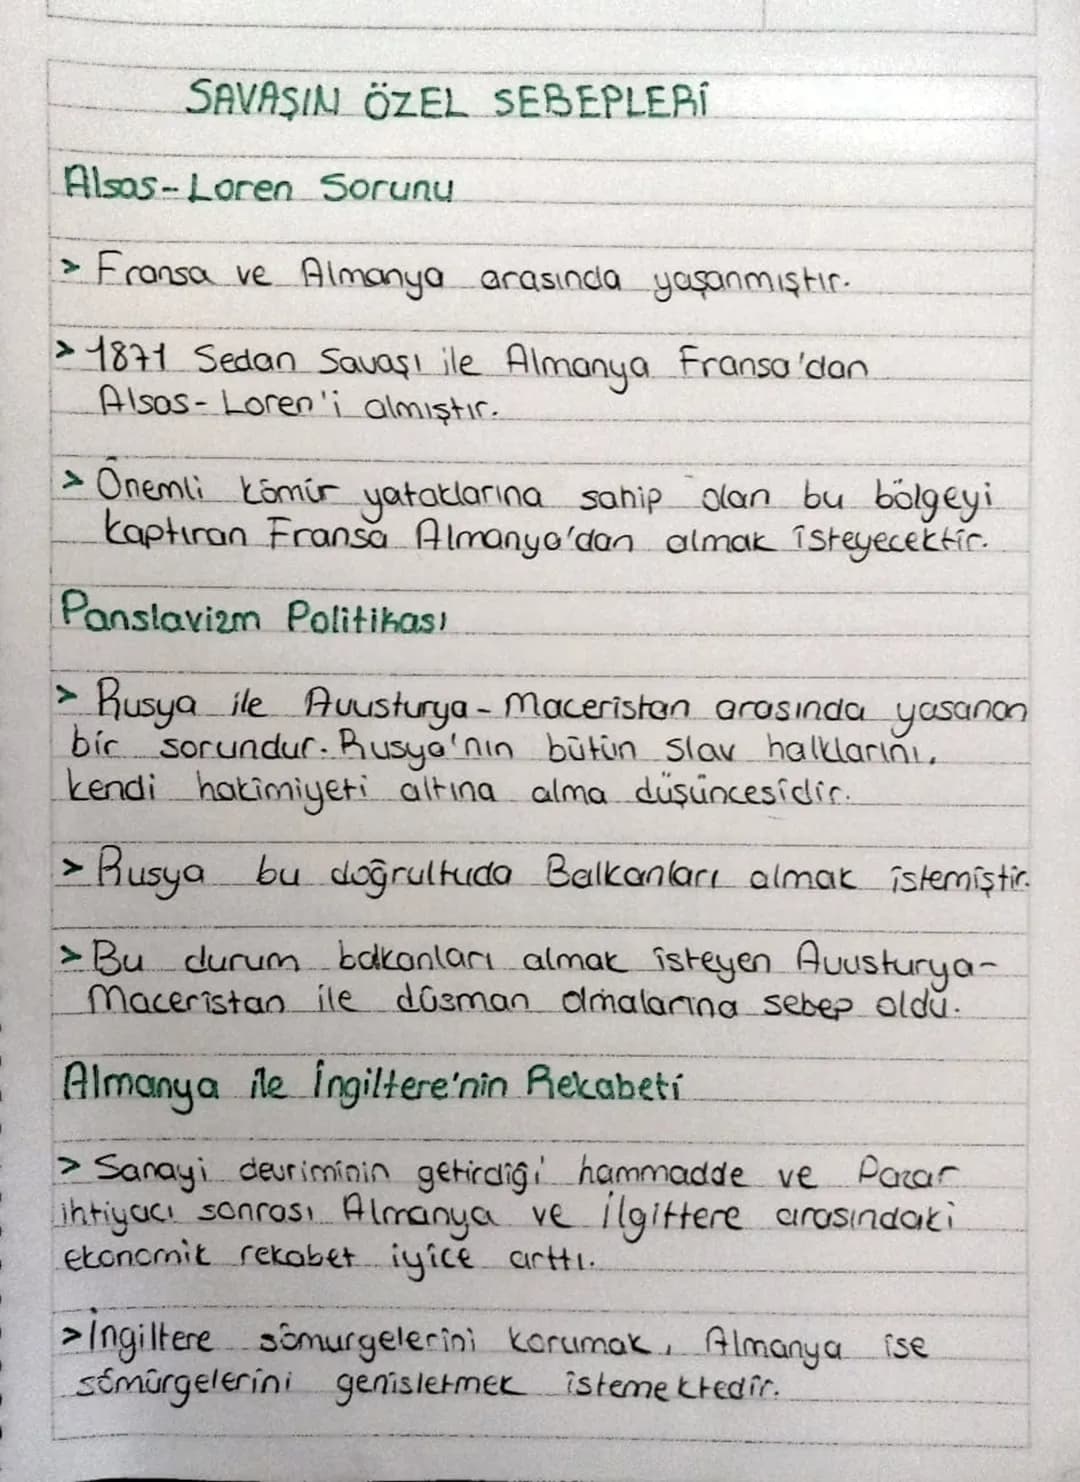 SAVAŞIN ÖZEL SEBEPLERİ
Alsas-Loren Sorunu
> Fransa ve Almanya arasında yaşanmıştır.
> 1871 Sedan Savaşı ile Almanya Fransa'dan
Alsas-Loren'i almıştır.
> Önemli kömür yataklarına sahip olan bu bölgeyi
kaptıran Fransa Almanya'dan almak isteyecektir.
Panslavizm Politikası
> Rusya ile Avusturya-Maceristan arasında yasanan
bir sorundur. Rusya'nın bütün Slav halklarını,
kendi hakimiyeti altına alma düşüncesidir.
> Rusya bu doğrultuda Balkanları almak istemiştir.
> Bu durum balkanları almak isteyen Avusturya-
Maceristan ile düsman olmalarına sebep oldu.
Almanya ile İngiltere'nin Rekabeti
> Sanayi devriminin getirdiği hammadde ve Pazar
ihtiyacı sonrası Almanya ve İlgittere arasındaki
ekonomik rekabet iyice arttı.
> İngiltere sömurgelerini korumak, Almanya ise
sömürgelerini genisletmek istemektedir.